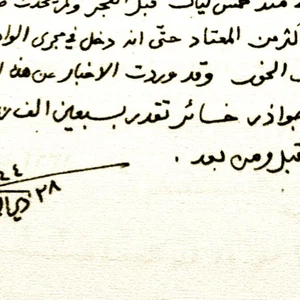 منذ خمس ليال قبل الفجر ولم يحدث
من المعتاد حتى انه دخل في مجرى الواد
الخور وقد وردت الاخبار عن هذا
خسائر تقدر بسبعين الف
قبل ومن بعد .
٤٤
٢٨